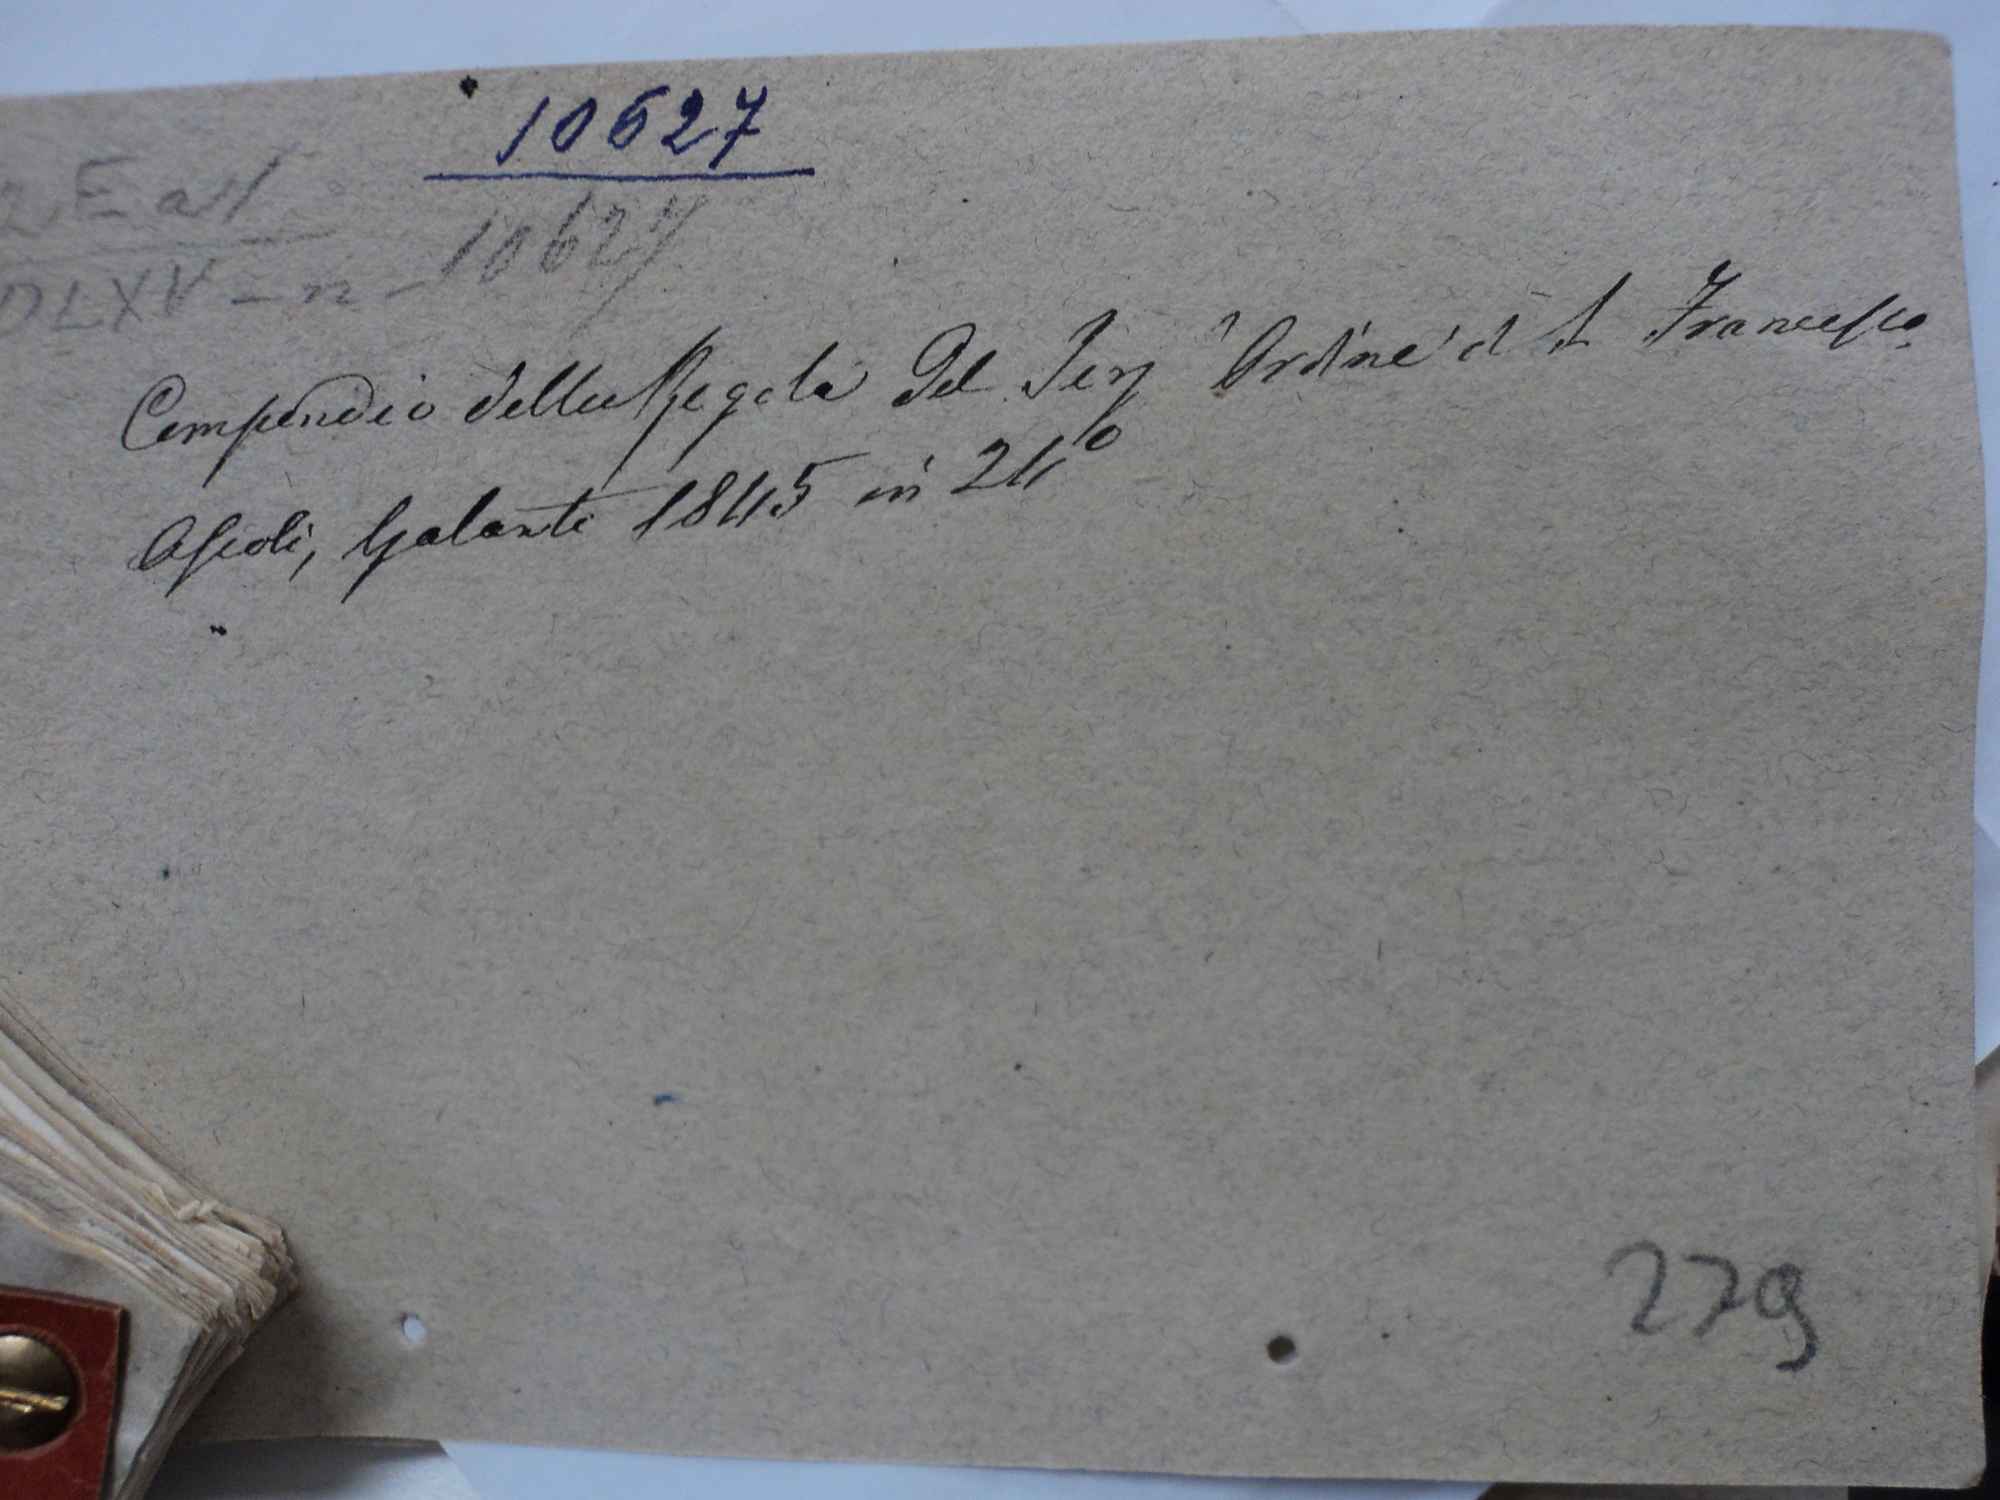 10627
DLXV - n - 10627
Compendio della Regola del Terz Ordine di S Francesco.
Ascoli, Galanti 1845 in 24º
279